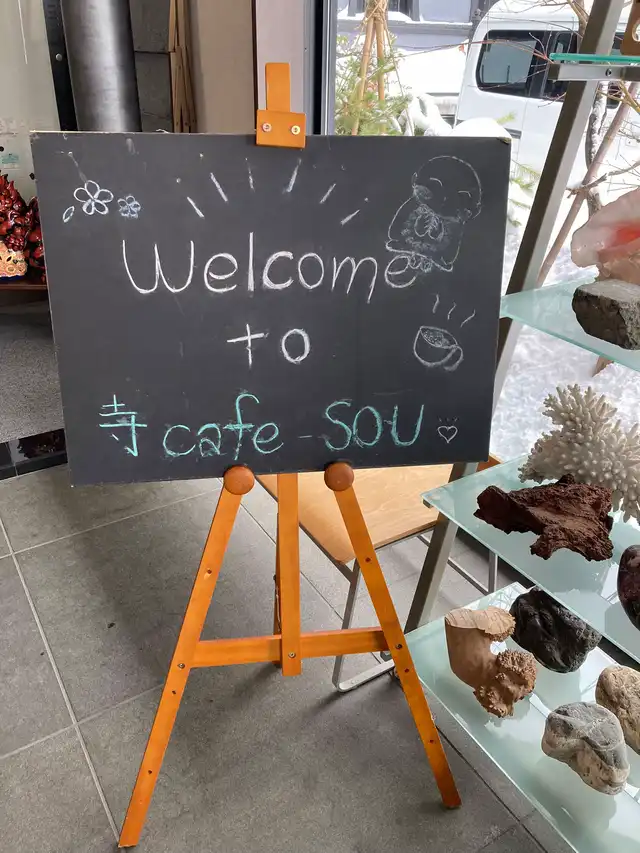 Welcome
to
寺 cafe-SOU